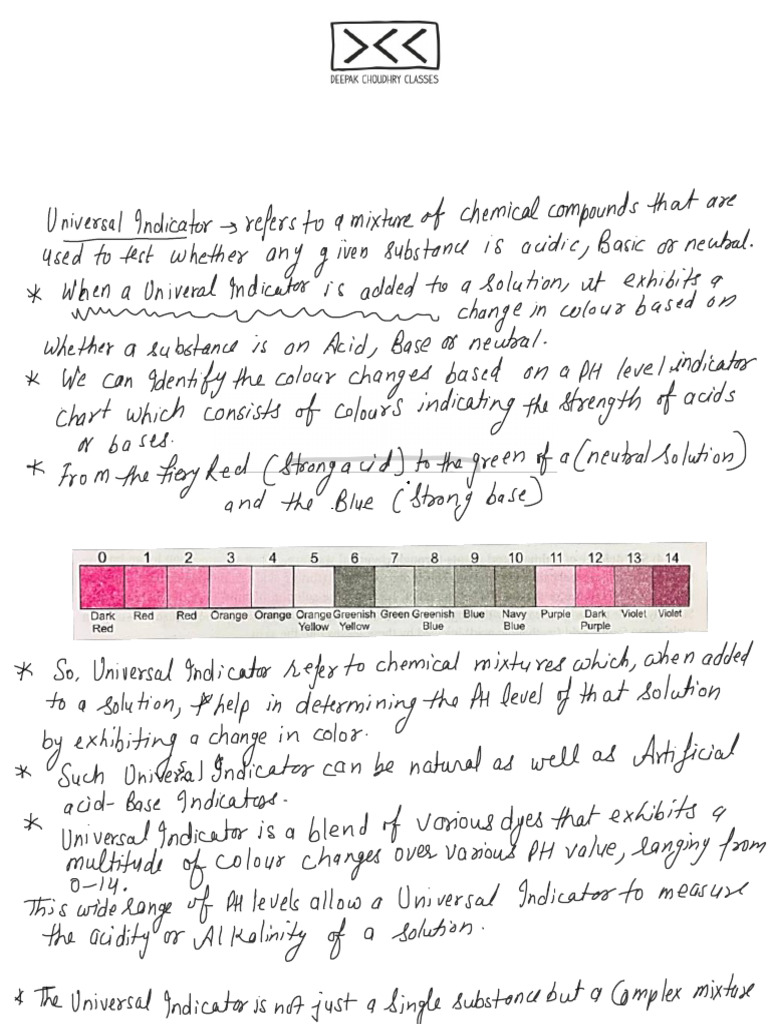 DEEPAK CHOUDHRY CLASSES
Universal Indicator → refers to a mixture of chemical compounds that are
used to test whether any given substance is acidic, Basic or neutral.
* When a Univeral Indicator is added to a solution, it exhibits a
change in colour based on
whether a substance is an Acid, Base or neutral.
* We can Identify the colour changes based on a PH level indicator
chart which consists of colours indicating the strength of acids
or bases.
* From the fiery Red (Strong acid) to the green of a (neutral solution)
and the Blue (Strong base)
0 1 2 3 4 5 6 7 8 9 10 11 12 13 14
Dark Red Red Red Orange Orange Orange Yellow Greenish Yellow Green Greenish Blue Blue Navy Blue Purple Dark Purple Violet Violet
* So, Universal Indicator refer to chemical mixtures which, when added
to a solution, help in determining the PH level of that solution
by exhibiting a change in color.
* Such Universal Indicator can be natural as well as Artificial
acid-Base Indicators.
* Universal Indicator is a blend of various dyes that exhibits a
multitude of colour changes over various PH value, ranging from
0-14.
This wide range of PH levels allow a Universal Indicator to measure
the acidity or Alkalinity of a solution.
* The Universal Indicator is not just a Single substance but a Complex mixture